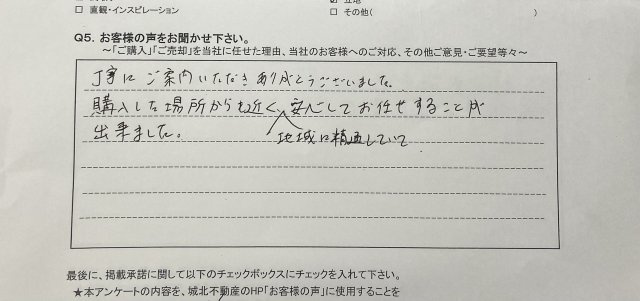 □ 直観・インスピレーション
□ その他( )
Q5. お客様の声をお聞かせ下さい。
～「ご購入」「ご売却」を当社に任せた理由、当社のお客様へのご対応、その他ご意見・ご要望等々～
丁寧にご案内いただきありがとうございました。
購入した場所からも近く、安心してお任せすることが
地域に精通していて
出来ました。
最後に、掲載承諾に関して以下のチェックボックスにチェックを入れて下さい。
★本アンケートの内容を、城北不動産のHP「お客様の声」に使用することを